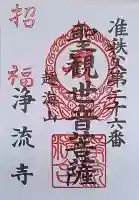 准秩父第二十六番
聖観世音菩薩
越海山
招福
浄流寺